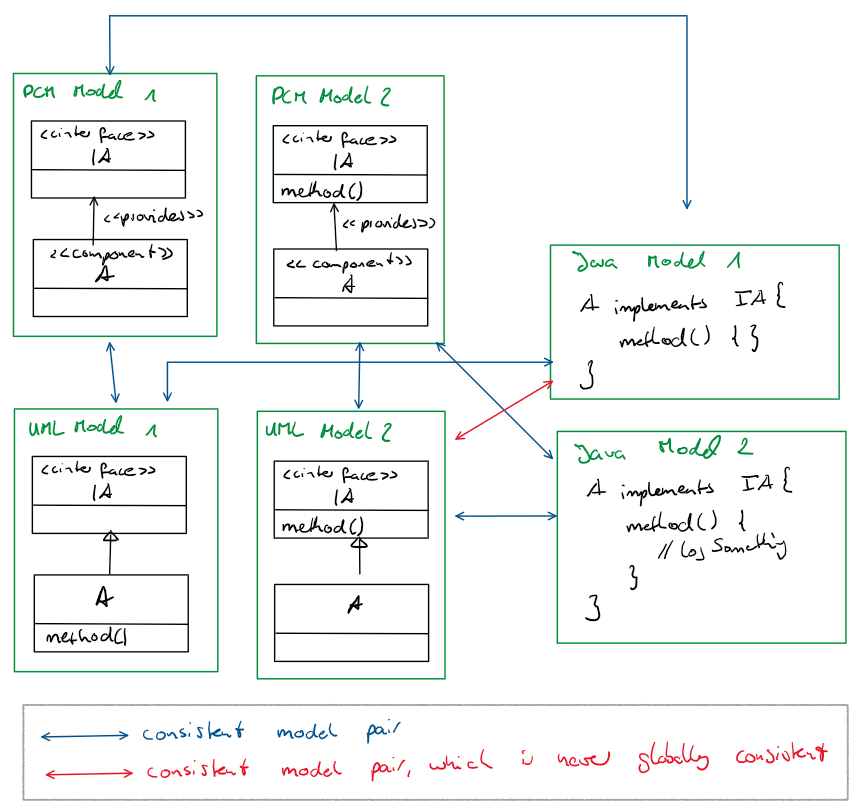 PCM Model 1
<<interface>>
IA
<<provides>>
<<component>>
A
PCM Model 2
<<interface>>
IA
method()
<<provides>>
<<component>>
A
Java Model 1
A implements IA {
method() { }
}
UML Model 1
<<interface>>
IA
A
method()
UML Model 2
<<interface>>
IA
method()
A
Java Model 2
A implements IA {
method() {
// Log Something
}
}
consistent model pair
consistent model pair, which is never globally consistent